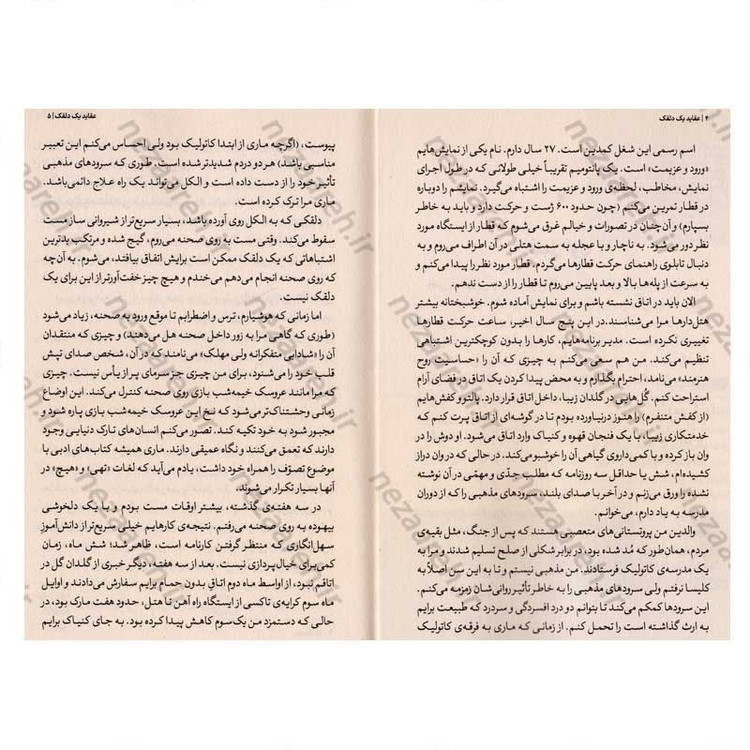 ۴ | عقاید یک دلقک
اسم رسمی این شغل کمدین است. ۲۷ سال دارم. نام یکی از نمایش‌هایم
«ورود و عزیمت» است. یک پانتومیم تقریباً خیلی طولانی که در طول اجرای
نمایش، مخاطب، لحظه‌ی ورود و عزیمت را اشتباه می‌گیرد. نمایشم را دوباره
در قطار تمرین می‌کنم (چون حدود ۶۰۰ ژست و حرکت دارد و باید به خاطر
بسپارم) و آن‌چنان در تصورات و خیالم غرق می‌شوم که قطار از ایستگاه مورد
نظر دور می‌شود. به ناچار و با عجله به سمت هتلی در آن اطراف می‌روم و به
دنبال تابلوی راهنمای حرکت قطارها می‌گردم، قطار مورد نظر را پیدا می‌کنم و
به سرعت از پله‌ها بالا و بعد پایین می‌روم تا قطار را از دست ندهم.
الان باید در اتاق نشسته باشم و برای نمایش آماده شوم. خوشبختانه بیشتر
هتل‌دارها مرا می‌شناسند. در این پنج سال اخیر، ساعت حرکت قطارها
تغییری نکرده است. مدیر برنامه‌هایم، کارها را بدون کوچکترین اشتباهی
تنظیم می‌کند. من هم سعی می‌کنم به چیزی که آن را «حساسیت روح
هنرمند» می‌نامد، احترام بگذارم و به محض پیدا کردن یک اتاق در فضای آرام
استراحت کنم. گُل‌هایی در گلدان زیبا، داخل اتاق قرار دارد. پالتو و کفش‌هایم
(از کفش متنفرم) را هنوز درنیاورده بودم تا در گوشه‌ای از اتاق پرت کنم که
خدمتکاری زیبا، با یک فنجان قهوه و کنیاک وارد اتاق می‌شود. او دوش را در
وان باز کرده و با کمی داروی گیاهی آن را خوشبو می‌کند. در حالی که در وان دراز
کشیده‌ام، شش یا حداقل سه روزنامه که مطلب جدّی و مهمّی در آن نوشته
نشده را ورق می‌زنم و در آخر با صدای بلند، سرودهای مذهبی را که از دوران
مدرسه به یاد دارم، می‌خوانم.
والدین من پروتستانی‌های متعصبی هستند که پس از جنگ، مثل بقیه‌ی
مردم، همان‌طور که مُد شده بود، در برابر شکلی از صلح تسلیم شدند و مرا به
یک مدرسه‌ی کاتولیک فرستادند. من مذهبی نیستم و تا به این سن اصلاً به
کلیسا نرفتم ولی سرودهای مذهبی را به خاطر تأثیر روانی‌شان زمزمه می‌کنم.
این سرودها کمکم می‌کند تا بتوانم دو درد افسردگی و سردرد که طبیعت برایم
به ارث گذاشته است را تحمل کنم. از زمانی که ماری به فرقه‌ی کاتولیک
عقاید یک دلقک | ۵
پیوست، (اگرچه ماری از ابتدا کاتولیک بود ولی احساس می‌کنم این تعبیر
مناسبی باشد) هر دو دردم شدیدتر شده است. طوری که سرودهای مذهبی
تأثیر خود را از دست داده است و الکل می‌تواند یک راه علاج دائمی باشد.
ماری مرا ترک کرده است.
دلقکی که به الکل روی آورده باشد، بسیار سریع‌تر از شیروانی ساز مست
سقوط می‌کند. وقتی مست به روی صحنه می‌روم، گیج شده و مرتکب بدترین
اشتباهاتی که یک دلقک ممکن است برایش اتفاق بیافتد، می‌شوم. به آن‌چه
که روی صحنه انجام می‌دهم می‌خندم و هیچ چیز خفت‌آورتر از این برای یک
دلقک نیست.
اما زمانی که هوشیارم، ترس و اضطرابم تا موقع ورود به صحنه، زیاد می‌شود
(طوری که گاهی مرا به زور داخل صحنه هل می‌دهند) و چیزی که منتقدان
آن را «شادابی متفکرانه ولی مهلک» می‌نامند که در آن، شخص صدای تپش
قلب خود را می‌شنود، برای من چیزی جز سرمای پر از یأس نیست. چیزی
که مرا مانند عروسک خیمه‌شب بازی روی صحنه کنترل می‌کند. این اوضاع
زمانی وحشتناک‌تر می‌شود که نخ این عروسک خیمه‌شب بازی پاره شود و
مجبور شود به خود تکیه کند. تصور می‌کنم انسان‌های تارک دنیایی وجود
دارند که تعمق می‌کنند و نگاه عمیقی دارند. ماری همیشه کتاب‌های ادبی با
موضوع تصوّف را همراه خود داشت، یادم می‌آید که لغات «تهی» و «هیچ» در
آنها بسیار تکرار می‌شوند.
در سه هفته‌ی گذشته، بیشتر اوقات مست بودم و با یک دلخوشی
بیهوده به روی صحنه می‌رفتم. نتیجه‌ی کارهایم خیلی سریع‌تر از دانش‌آموز
سهل‌انگاری که منتظر گرفتن کارنامه است، ظاهر شد؛ شش ماه، زمان
کمی برای خیال‌پردازی نیست. بعد از سه هفته، دیگر خبری از گلدان گل در
اتاقم نبود، از اواسط ماه دوم اتاق بدون حمام برایم سفارش می‌دادند و اوایل
ماه سوم کرایه‌ی تاکسی از ایستگاه راه آهن تا هتل، حدود هفت مارک بود، در
حالی که دستمزد من یک‌سوم کاهش پیدا کرده بود. به جای کنیاک برایم
nezaareh.ir